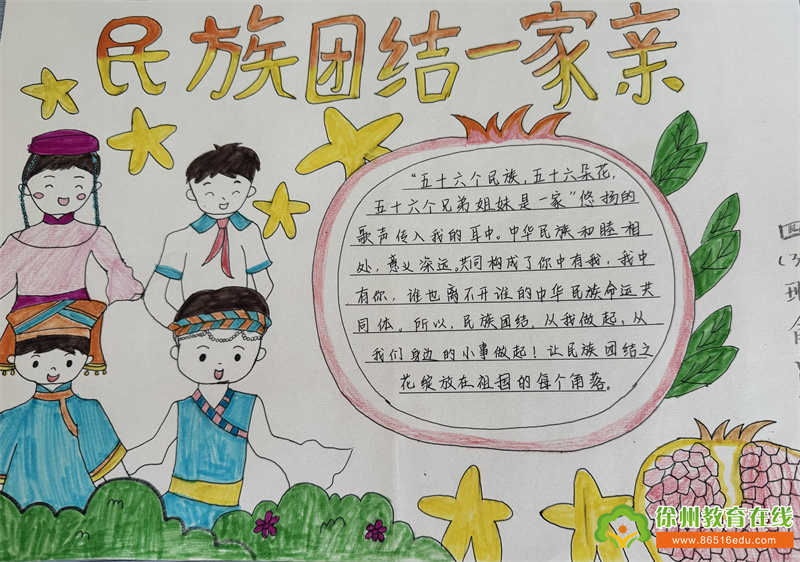 民族团结一家亲
“五十六个民族，五十六朵花，
五十六个兄弟姐妹是一家”悠扬的
歌声传入我的耳中。中华民族和睦相
处，意义深远。共同构成了你中有我，我中
有你，谁也离不开谁的中华民族命运共
同体。所以，民族团结，从我做起，从
我们身边的小事做起！让民族团结之
花绽放在祖国的每个角落。
四
(3
班
徐州教育在线
www.86516edu.com